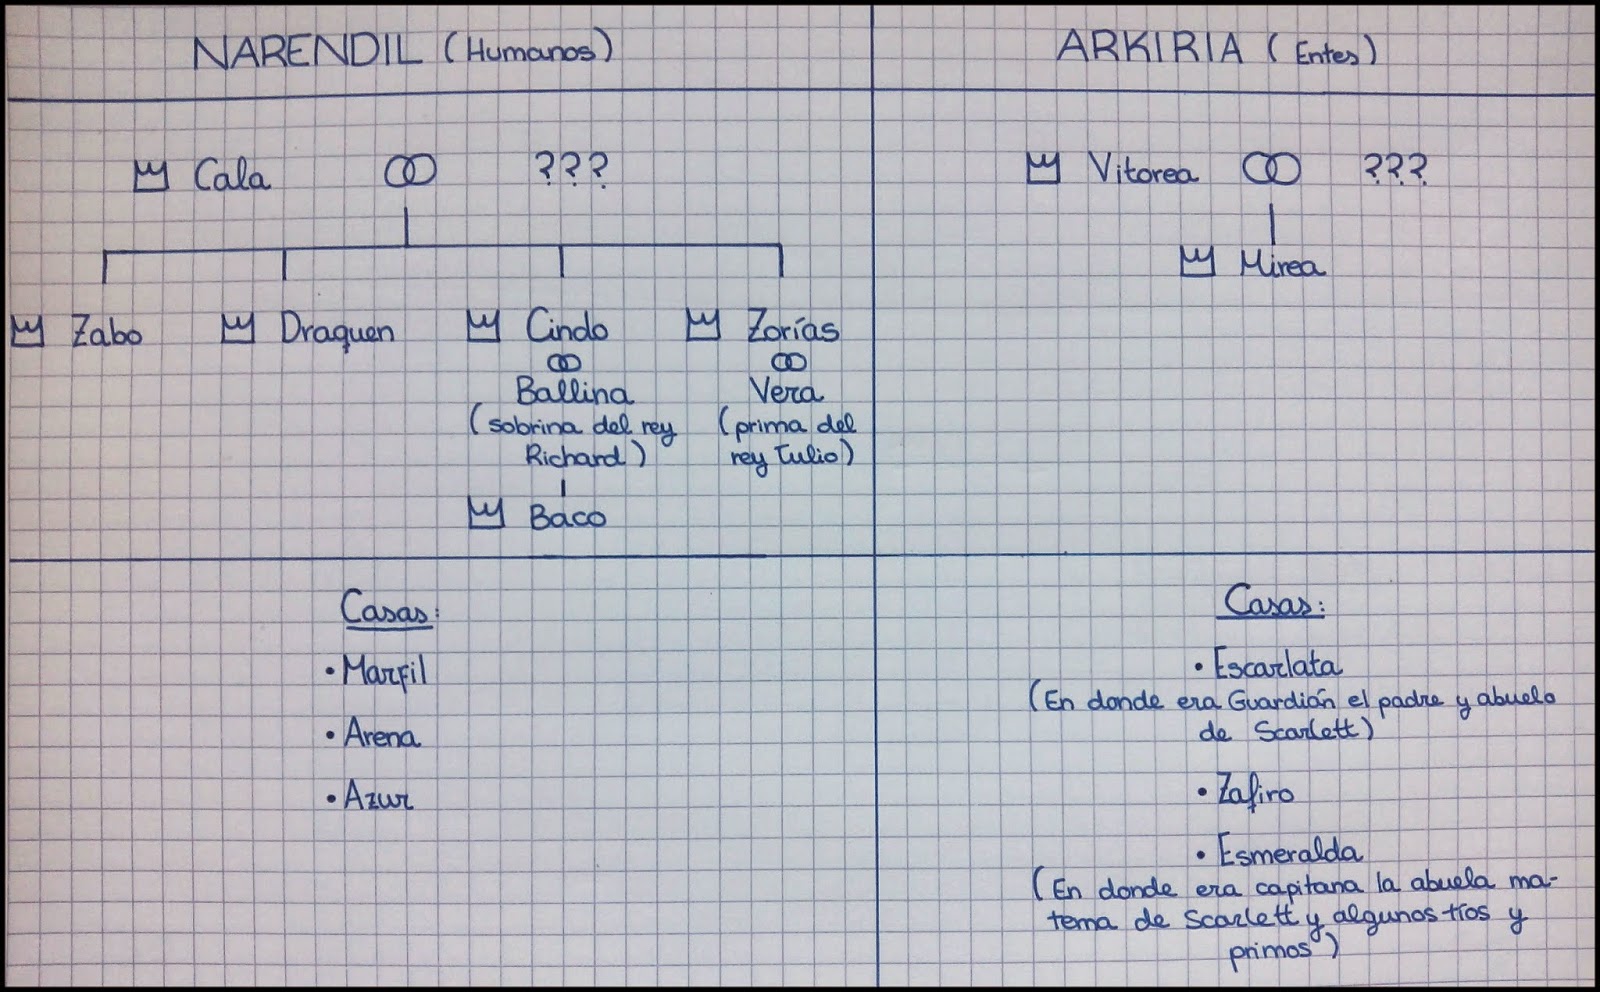 NARENDIL (Humanos)
Cala ???
Zabo Draquen Cindo Zorías
Ballina Vera
(sobrina del rey (prima del
Richard) rey Tulio)
Baco
Casas:
• Marfil
• Arena
• Azur
ARKIRIA (Entes)
Vitorea ???
Mirea
Casas:
• Escarlata
(En donde era Guardián el padre y abuelo
de Scarlett)
• Zafiro
• Esmeralda
(En donde era capitana la abuela ma-
terna de Scarlett y algunos tíos y
primos)